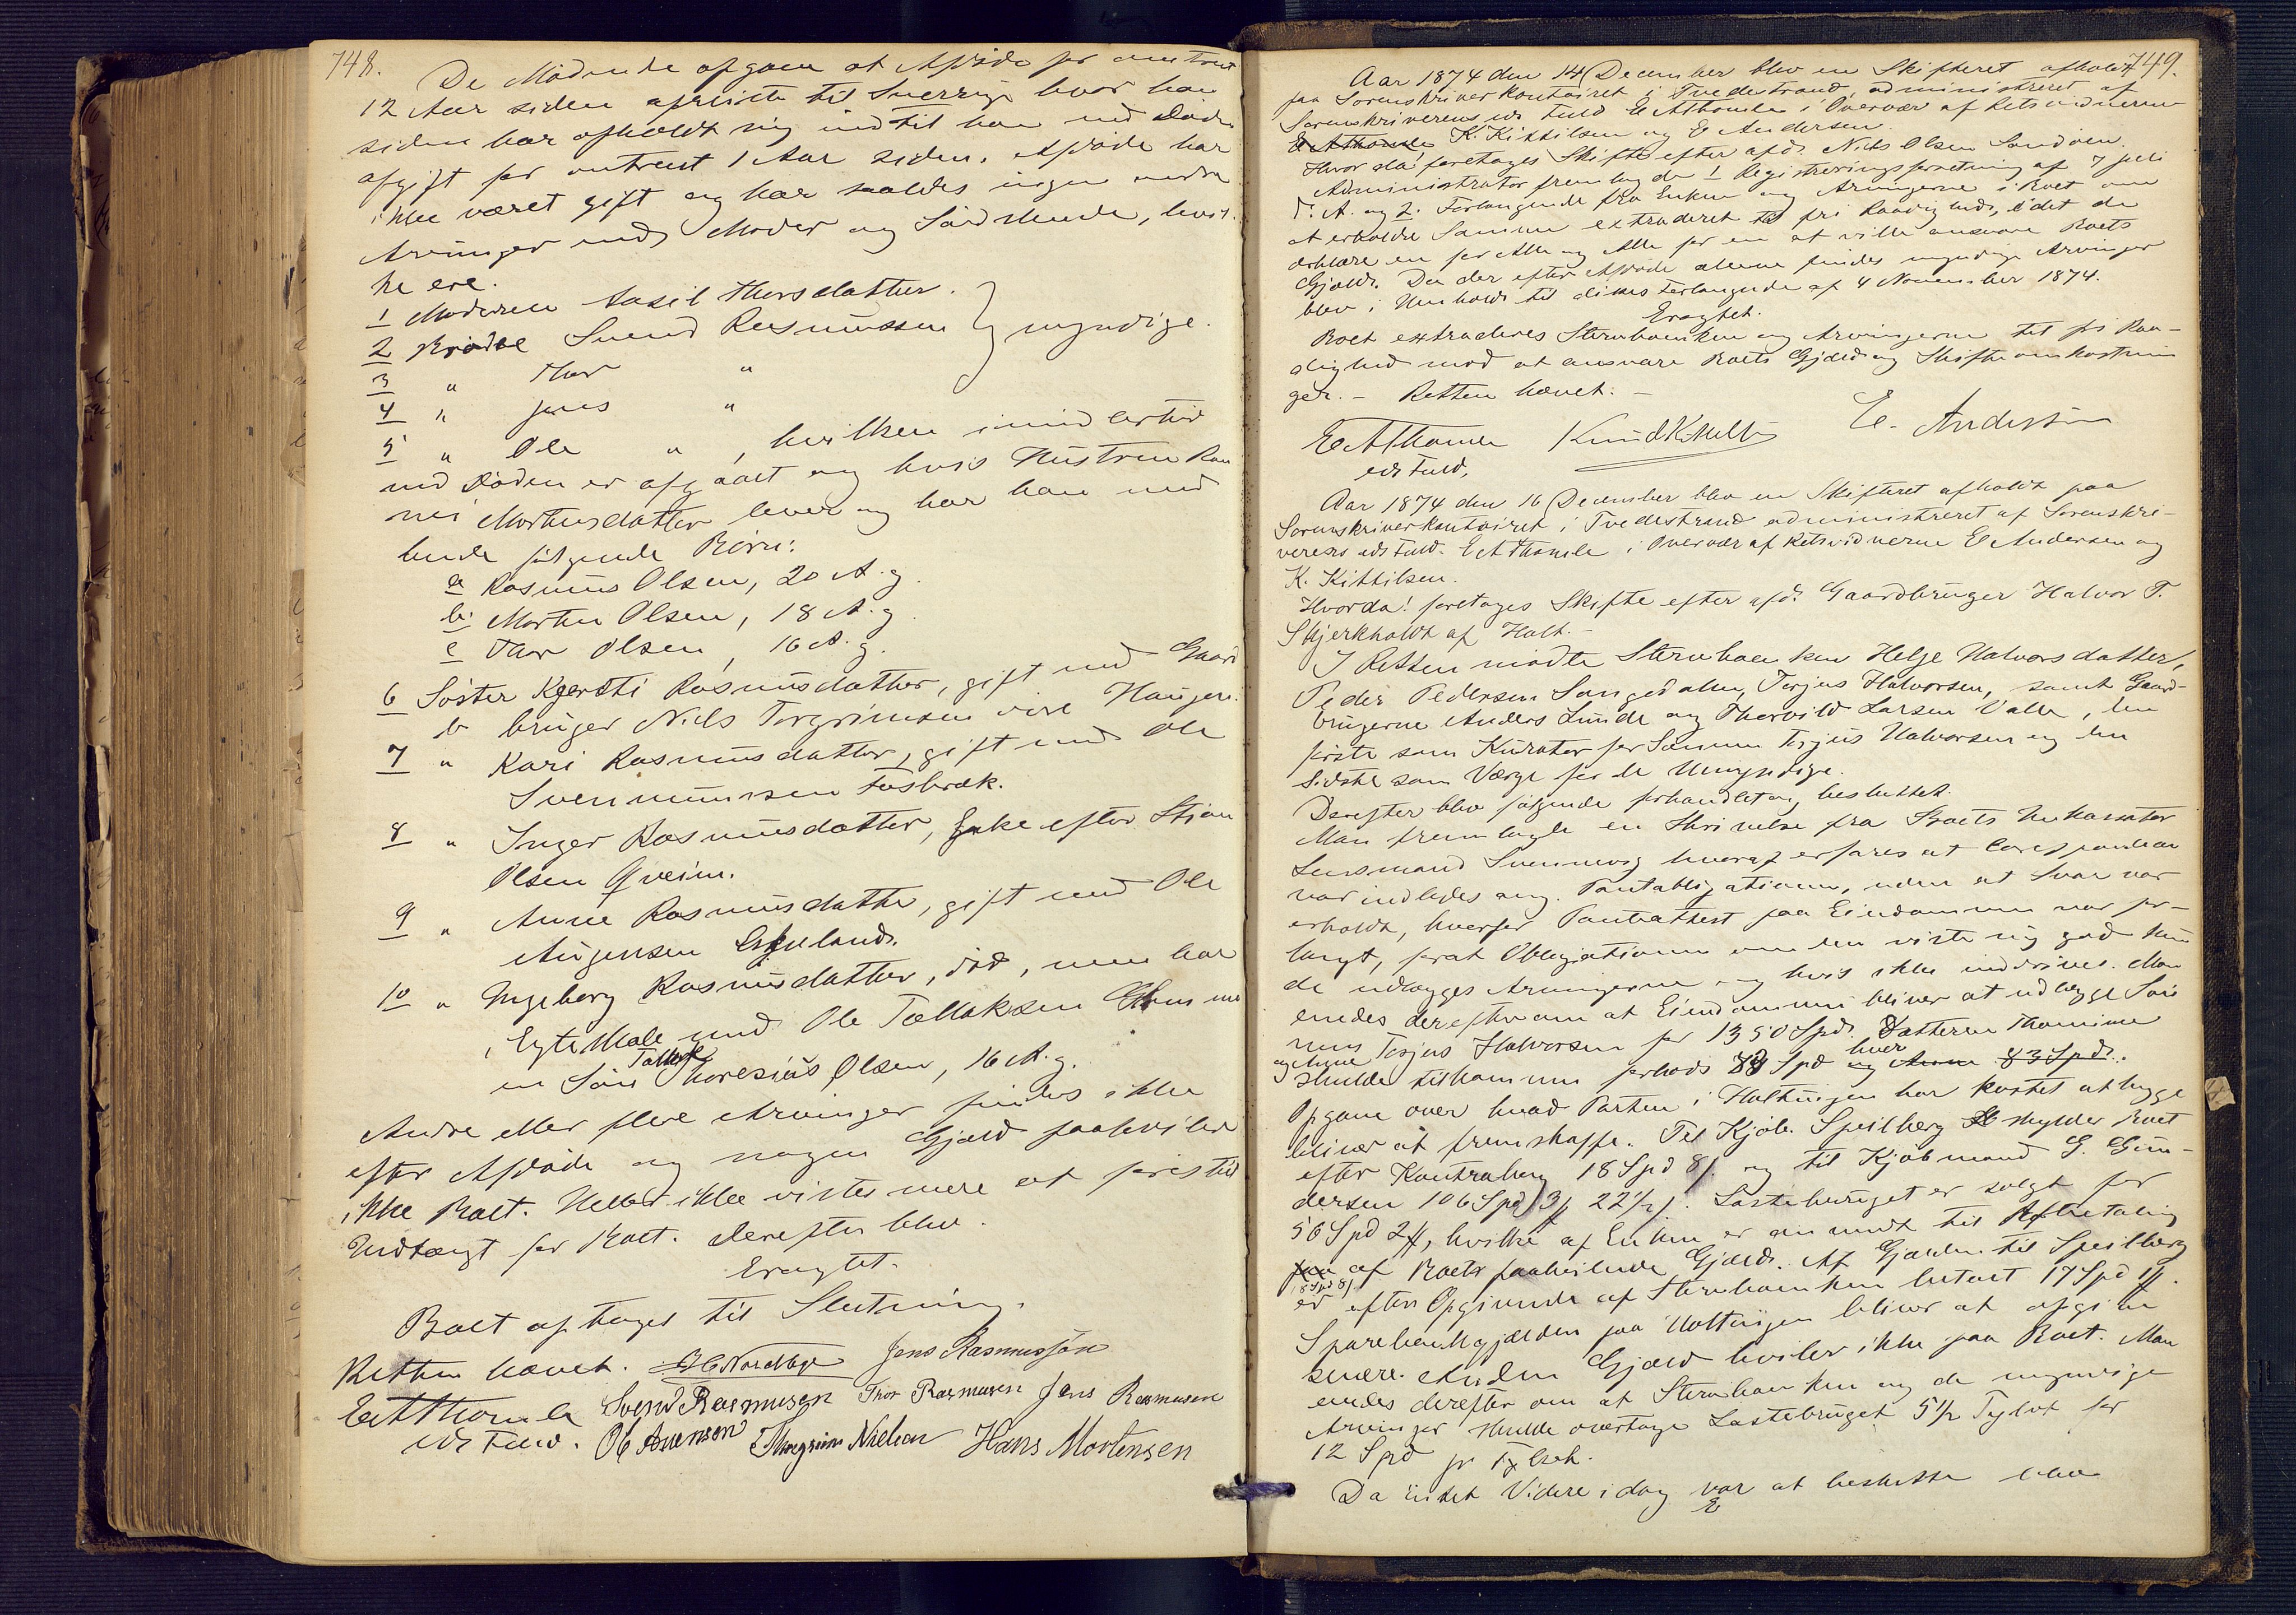 748.
De Mødende opgave at Afdøde for omtrent
12 Aar siden afreiste til Sverrige hvor han
siden har opholdt sig indtil han ved Døden
afgik for omtrent 1 Aar siden. Afdøde har
ikke været gift og har saaledes ingen andre
Arvinger end Moder og Sødskende, hvil-
ke ere.
1 Moderen Aasil Thorsdatter.
2 Broder Svend Rasmussen } myndige.
3 " Thor "
4 " Jens "
5 " Ole " , hvilken imidlertid
ved Døden er afgaaet og hvis Hustru
Mortensdatter lever og har han med
hende følgende Børn:
a Rasmus Olsen, 20 A. g.
b. Morten Olsen, 18 A. g
c Thor Olsen, 16 A. g.
6 Søster Kjersti Rasmusdatter, gift med Gaard
bruger Niels Torgrimsen Haugen.
7 " Kari Rasmusdatter, gift med Ole
Svenumsen Fosbræk.
8 " Inger Rasmusdatter, Enke efter Stian
Olsen Qveim.
9 " Anne Rasmusdatter, gift med Ole
Augensen
10 " Ingeborg Rasmusdatter, død, men har
i Egteskab med Ole Tallaksen
en Søn Tallak Olsen, 16 A. g.
Andre eller flere Arvinger findes ikke
efter Afdøde og nogen Gjæld paahviler
ikke Boet. Heller ikke vistes mere at føres til
Indtægt for Boet. Derefter blev.
Eragtet.
Boet optages til Slutning.
Retten hævet. Jens Rasmussøn
E A Thomle Svend Rasmusen Thor Rasmusen Jens Rasmusen
eds Fuld. Thorgrim Nielsen Hans Mortensen
749.
Aar 1874 den 14 December blev en Skifteret afholdt
paa Sorenskriverkontoiret i Tvedestrand, administreret af
Sorenskriverens eds Fuld E A Thomle i Overvær af Retsvidnerne
K. Kittilsen og E Andersen
Hvorda! foretages Skifte efter afd. Niels Olsen Sandøen.
Administrator fremlagde 1 Registreringsforretning af 7 Juli
d. A. og 2. Forlangende fra Enken og Arvingerne i Boet om
at erholde Samme extraderet til fri Raadighed, idet de
erklære en for Alle og Alle for en at ville ansvare Boets
Gjæld. Da der efter Afdøde alene findes myndige Arvinger
blev i Henhold til disses Forlangende af 4 November 1874.
Eragtet.
Boet extraderes Stervboenken og Arvingerne til fri Raa-
dighed mod at ansvare Boets Gjæld og Skifteomkostnin
ger. - Retten hævet. -
E A Thomle E. Andersen
eds Fuld.
Aar 1874 den 16 December blev en Skifteret afholdt paa
Sorenskriverkontoiret i Tvedestrand administreret af Sorenskri-
verens eds Fuld. E A Thomle i Overvær af Retsvidnerne E Andersen og
K. Kittilsen.
Hvorda! foretages Skifte efter afd. Gaardbruger Halvor T.
Skjerkholdt af Holt. -
I Retten mødte Stervboenken Helje Halvorsdatter,
Peder Pedersen Songedalen, Terjus Halvorsen, samt Gaard-
brugerne Anders Lunde og Thorvild Larsen Valle, den
første som Kurator for Sønnen Terjus Halvorsen og den
Sidste som Værge for de Umyndige.
Derefter blev følgende forhandlet og besluttet.
Man fremlagde en Skrivelse fra Boets Inkassator
Lensmand Svennevig hvoraf erfares at Correspondence
var indledes ang. Pantobligationen, uden at Svar var
erholdt, hvorfor Pantattest paa Eiendommen var for-
langt, forat Obligationen om den viste sig god kun
de udlægges Arvingerne og hvis ikke inddrives. Man
enedes derefter om at Eiendommen bliver at udlægge Søn
nen Terjus Halvorsen for 1350 Spd. Datteren Thomine
og Anne skulde tilkomme forlods 83 Spd hver og Anne 83 Spd.
Opgave over hvad Parten i Holtungen har kostet at bygge
bliver at fremskaffe. Til Kjøb. Speilberg skylder Boet
efter Kontrabog 18 Spd 8ſ. og til Kjøbmand G. Gun-
dersen 106 Spd 3 22½ſ. Lastebruget er solgt for
56 Spd 2, hvilke af Enken er anvendt til Afbetaling
af Boets paahvilende Gjæld. Af Gjælden til Speilberg
18 Spd 8ſ.
er efter Opgivende af Stervboenken betalt 17 Spd
Sparebankgjælden paa Holtungen bliver at opgive
senere. Anden Gjæld hviler ikke paa Boet. Man
enedes derefter om at Stervboenken og de myndige
Arvinger skulde overtage Lastebruget 5½ Tylvt for
12 Spd pr Tylvt.
Da Intet Videre idag var at beslutte blev
E